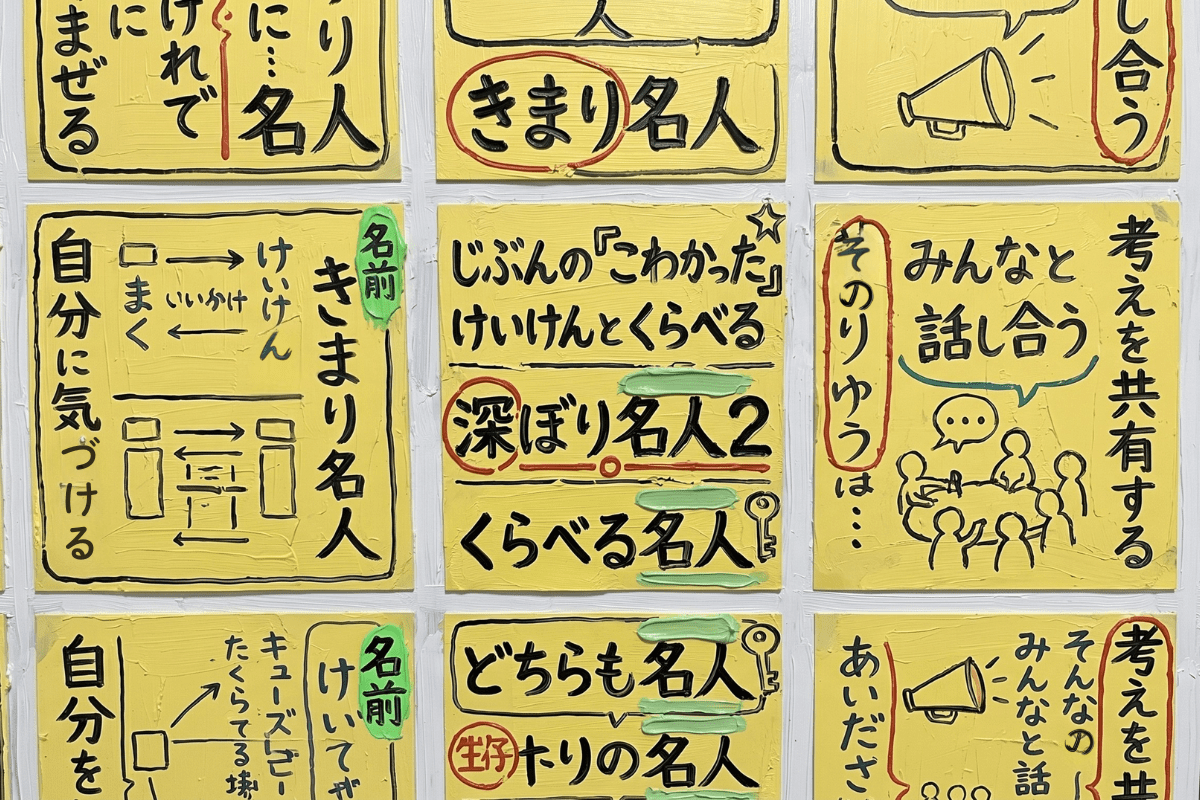 り人
に…名人
けれで
に
まぜる
人
きまり名人
し合う
名前
きまり名人
けいけん
いいかけ
まく
自分に気づける
じぶんの『こわかった』
けいけんとくらべる
深ぼり名人2
くらべる名人
考えを共有する
みんなと
話し合う
そのりゆう
は…
名前
けいてが
キューズしごー
たくらてる
自分を
どちらも名人
たりの名人
考えを共
そんなの
みんなと話
あいださ